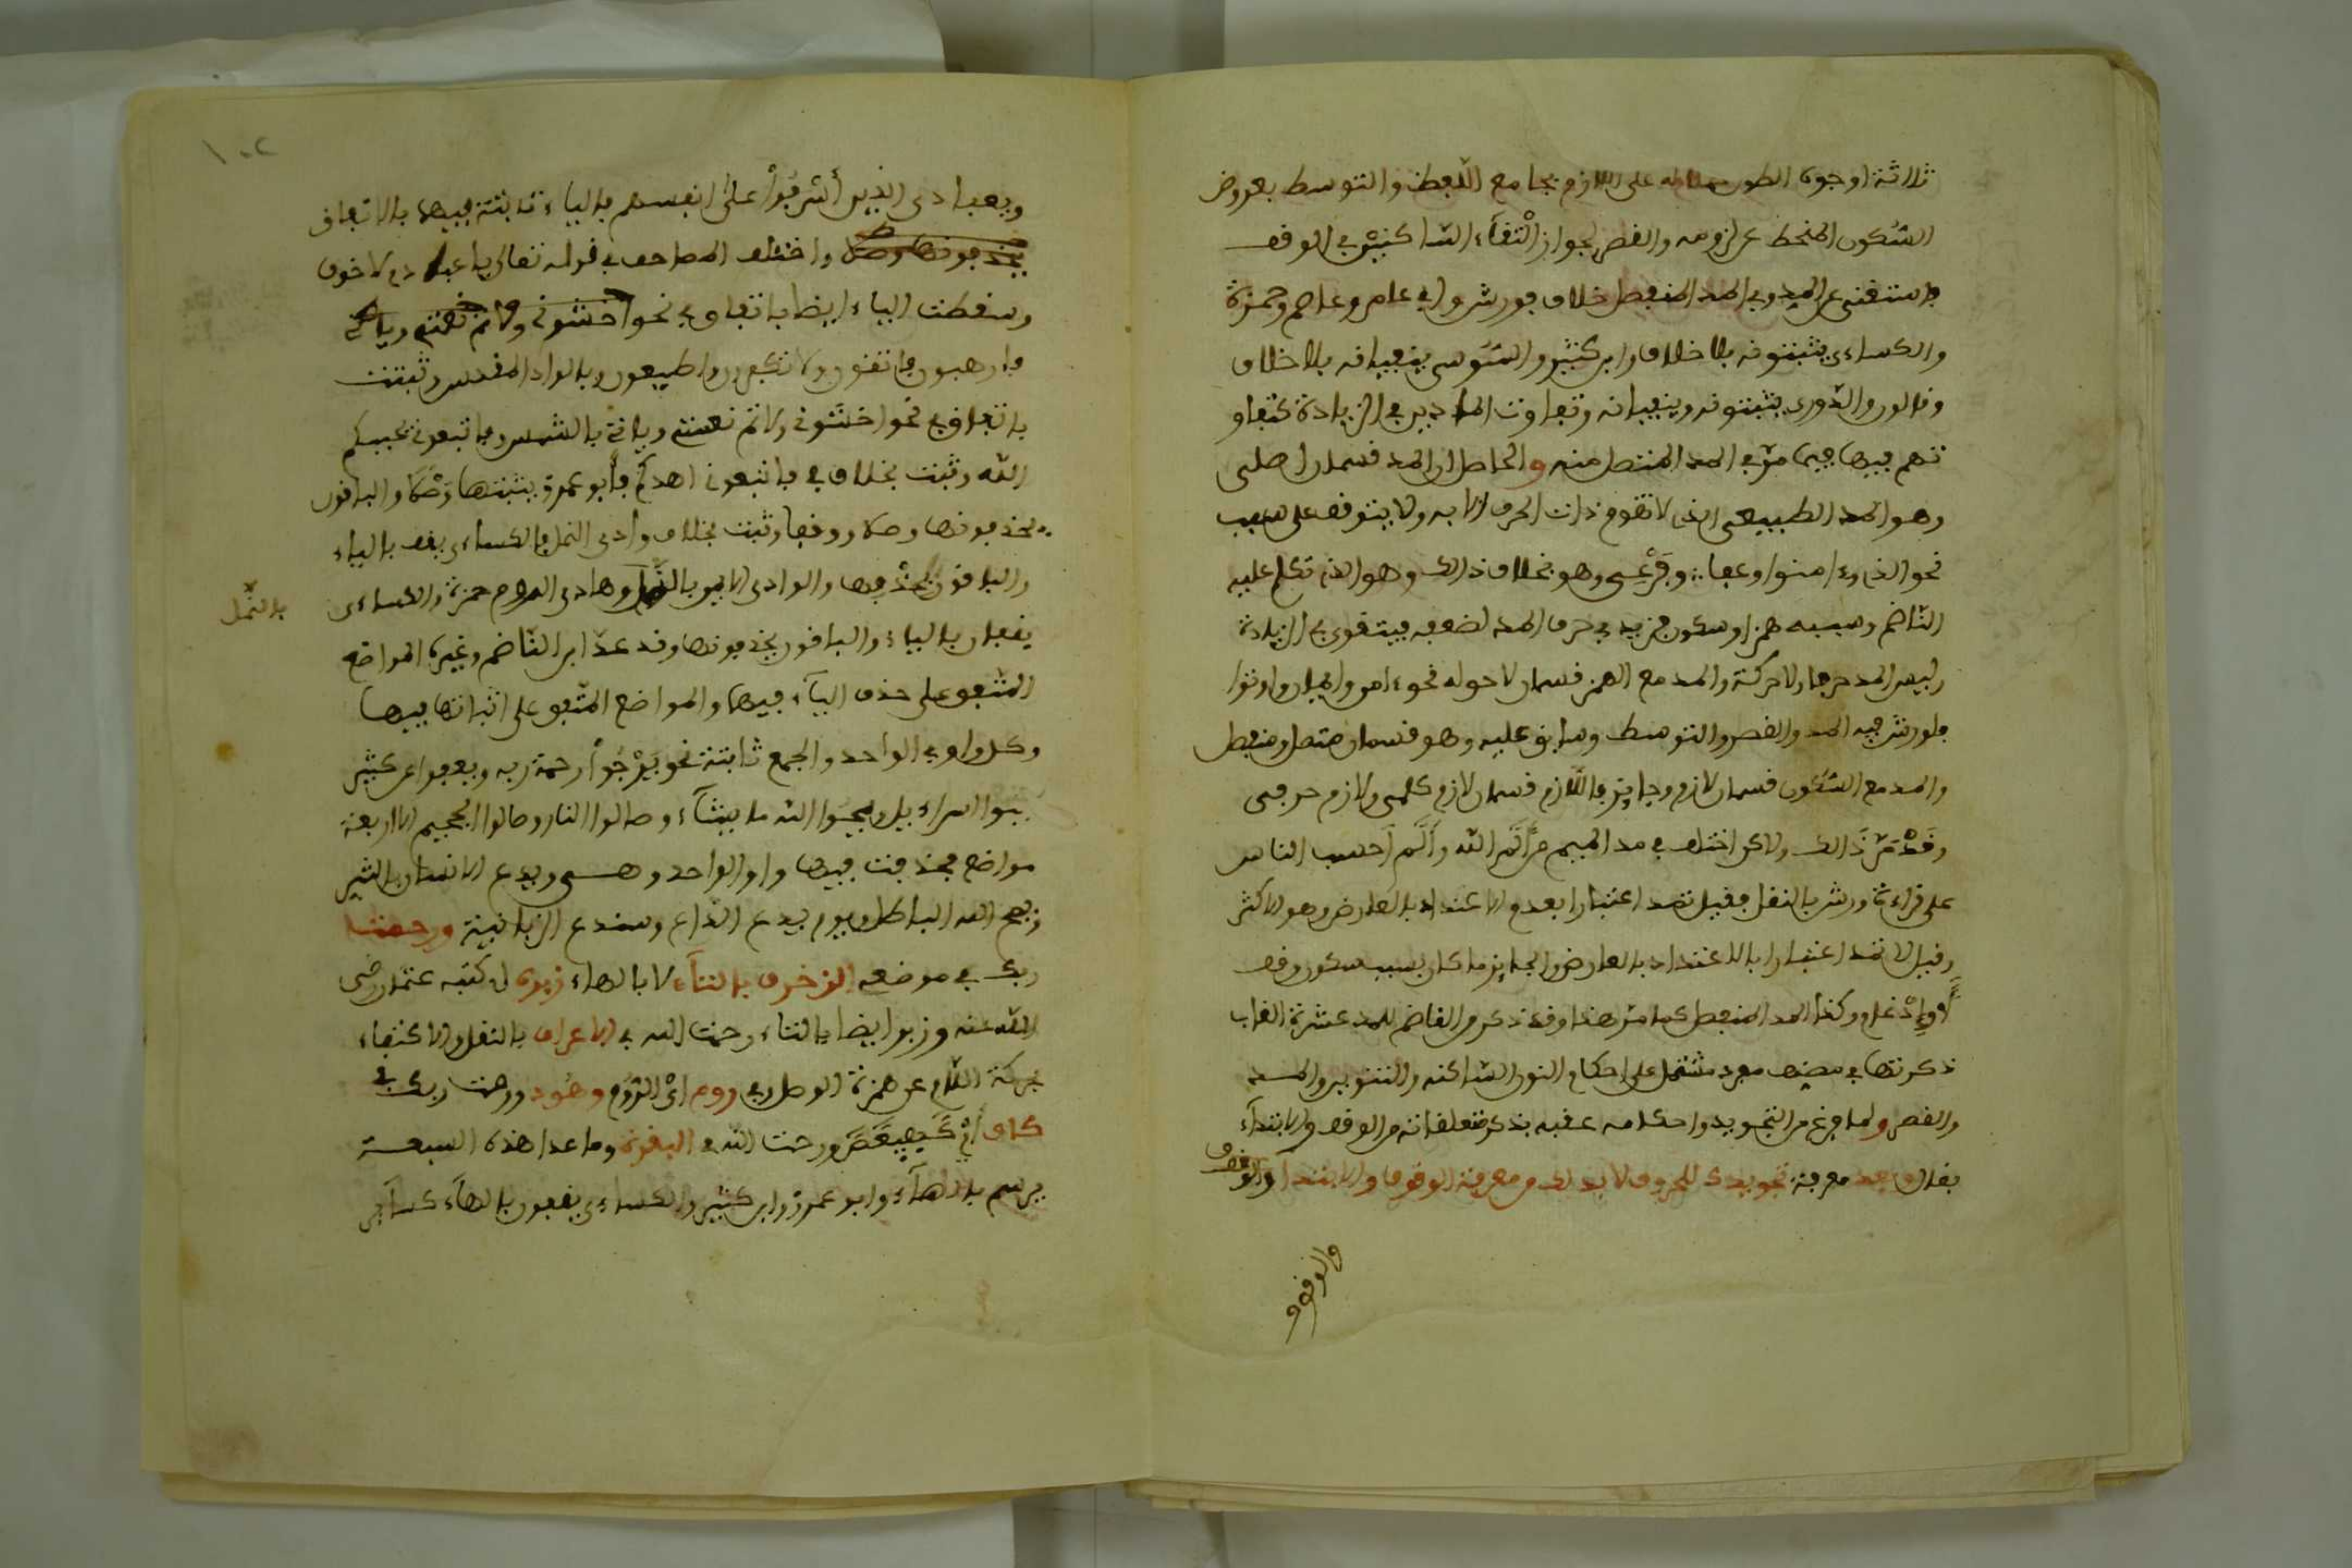 ثلاثة اوجه الطول حملا له على اللازم بجامع اللفظ والتوسط بعروض
السّكون المنحط عن لزومه والقصر لجواز الْتقآء السّاكنيْن في الوقف
واستغنى عن المد وفي المد المنفصل خلاف فورش وابن عامر وعاصم وحمزة
والكساءى يثبتونه بلا خلاف وابن كثير والسّوسى ينفيانه بلا خلاف
وقالون والدّورى يثبتونه وينفيانه وتفاوت المادين في الزيادة كتفاو
تهم فيها فيما مرّ في المد المتصل منه والحاصل ان المد قسمان اصلى
وهو المد الطبيعى الذى لا تقوم ذات الحرف الا به ولا يتوقف على سبب
نحو الذين ءامنوا وعفا وفرعى وهو بخلاف ذالك وهو الذى تكلم عليه
النّاظم وسببه همز او سكون فزيد في حرف المد لضعفه فيتقوى بالزيادة
وليس المد حرفا ولا حركة والمد مع الهمز قسمان لاحق له نحو ءامن وايمان واوتوا
فلورش فيه المد والقصر والتوسط وسابق عليه وهو قسمان متصل ومنفصل
والمد مع السّكون قسمان لازم وجايز فاللّازم قسمان لازم كلمى ولازم حرفى
وقدْ مَرّ ذَالك ولاكن اختلف في مد الميم من الَمَ الله والَم أحسب الناس
على قراءة ورش بالنقل فقيل تمد اعتبارا بعدم الاعتداد بالعارض وهو الاكثر
وقيل لا تمد اعتبارا بالاعتداد بالعارض والجايز ما كان بسبب سكون وقف
أَوِ ادْغام وكذا المد المنفصل كما مر هذا وقد ذكر من الفاضم للمد عشرة القاب
ذكرتها في مصنف مفرد مشتمل على احكام النون السّاكنة والتنوين والمد
والقصر ولما فرغ من التجويد واحكامه عقبه بذكر متعلقاته من الوقف والابتدآء
فقال وبعد معرفة تجويدك للحروف لا بد لك من معرفة الوقوف والابتدا والوقوف
والوقوف
١٠٢
ويعبادى الذين أسْرفُوْا علىٰ انفسهم بالياء ثابتة فيهما بالاتفاق
يحذفونها وصلا واختلف المصاحف في قوله تعالى ياعباد لا خوف
وسقطت الياء ايضا باتفاق في نحو اخشونى ولاتم نعمتى ويا
فارهبون فاتقون ولا تكفرون واطيعون وبالواد المقدس وثبتت
باتفاق في نحو اخشونى ولاتم نعمتى وياتى بالشمس فاتبعونى يحببكم
الله وثبتت بخلاف في فاتبعونى اهدكم فأبو عمرو يثبتها وَصْلا والباقون
يحذفونها وصلا ووقفا وثبتت بخلاف وادى النمل فالكساءى يقف بالياء
والباقون بحذفها والوادى الايمن بالنّمل وهادى الروم حمزة والكساءى
بالنّمل
يقفان بالياء والباقون يحذفونها وقد عدّ ابن النّاظم وغيره المواضع
المتّفق على حذف اليآء فيها والمواضع المتّفق على اثباتها فيها
وكل واو في الواحد والجمع ثابتة نحو يَرْجُواْ رحمة ربه ويعفوا عن كثير
بنوا اسراءيل ويمحُوا الله ما يشآء وصالوا النار وصالوا الجحيم الا اربعة
مواضع فحذفت فيها واو الواحد وهى ويدع الانسان بالشر
ويمح الله الباطل ويوم يدع الدّاع وسندع الزبانية ورحمتا
ربك في موضعه الزخرف بالتآء لا بالهاء زبره اى كتبه عثمان رضى
الله عنه وزبر ايضا بالتاء رحمت الله في الاعراف بالنقل والاكتفاء
بحركة اللّام عن همزة الوصل وفى روم اىْ الرّوم وهُود ورحمت ربك في
كاف أىْ كَهيعَصَ ورحمت الله في البقرة وما عدا هذه السبعة
يرسم بالهآء وابو عمرو وابن كثير والكساءى يقفون بالهآء كسآير